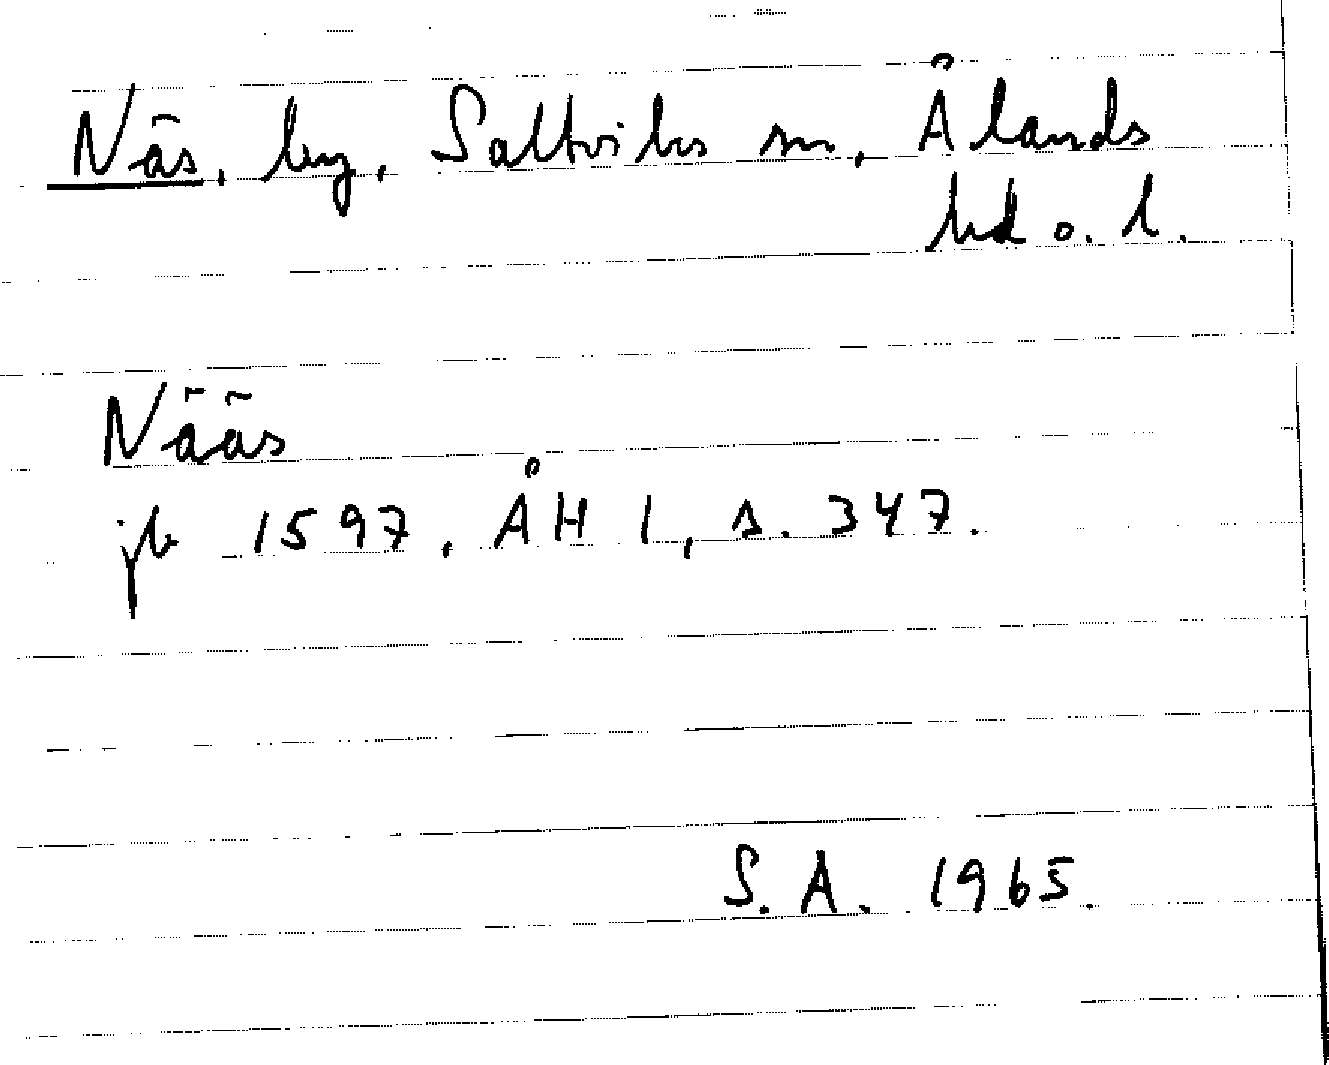 Näs, by, Saltviks sn, Ålands
hd o. l.
Nääs
jb 1597, ÅH I, s. 347.
S. A. 1965.